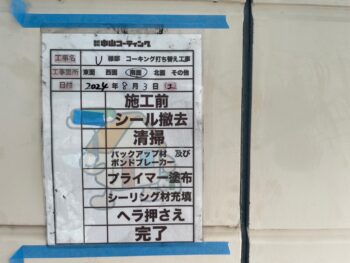 株式会社 中山コーティング
工事名 U 様邸 コーキング打ち替え工事
工事箇所 東面 西面 南面 北面 その他
日付 2024 年 8 月 3 日
施工前
シール撤去
清掃
バックアップ材 及び
ボンドブレーカー
プライマー塗布
シーリング材充填
ヘラ押さえ
完了